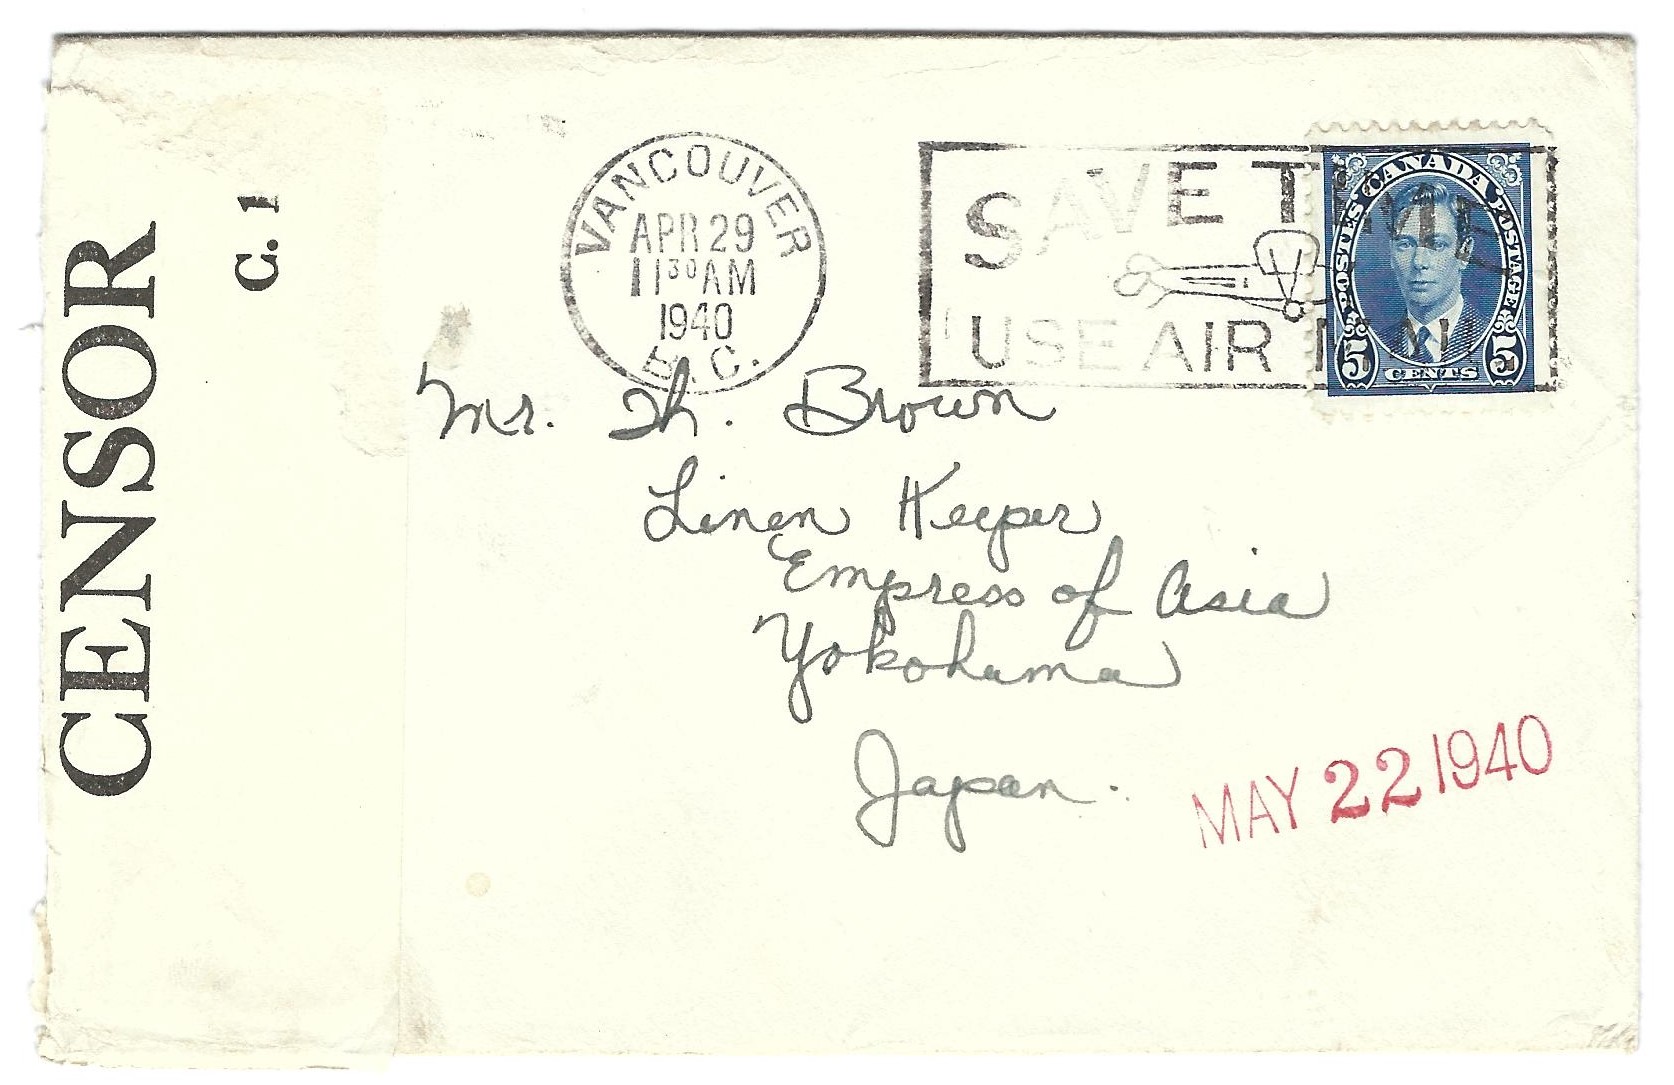 CENSOR
C. 1
VANCOUVER
APR 29
11 30 AM
1940
B.C.
SAVE TIME
USE AIR MAIL
CANADA
POSTES POSTAGE
5 CENTS 5
Mr. Th. Brown
Linen Keeper
Empress of Asia
Yokohama
Japan.
MAY 22 1940